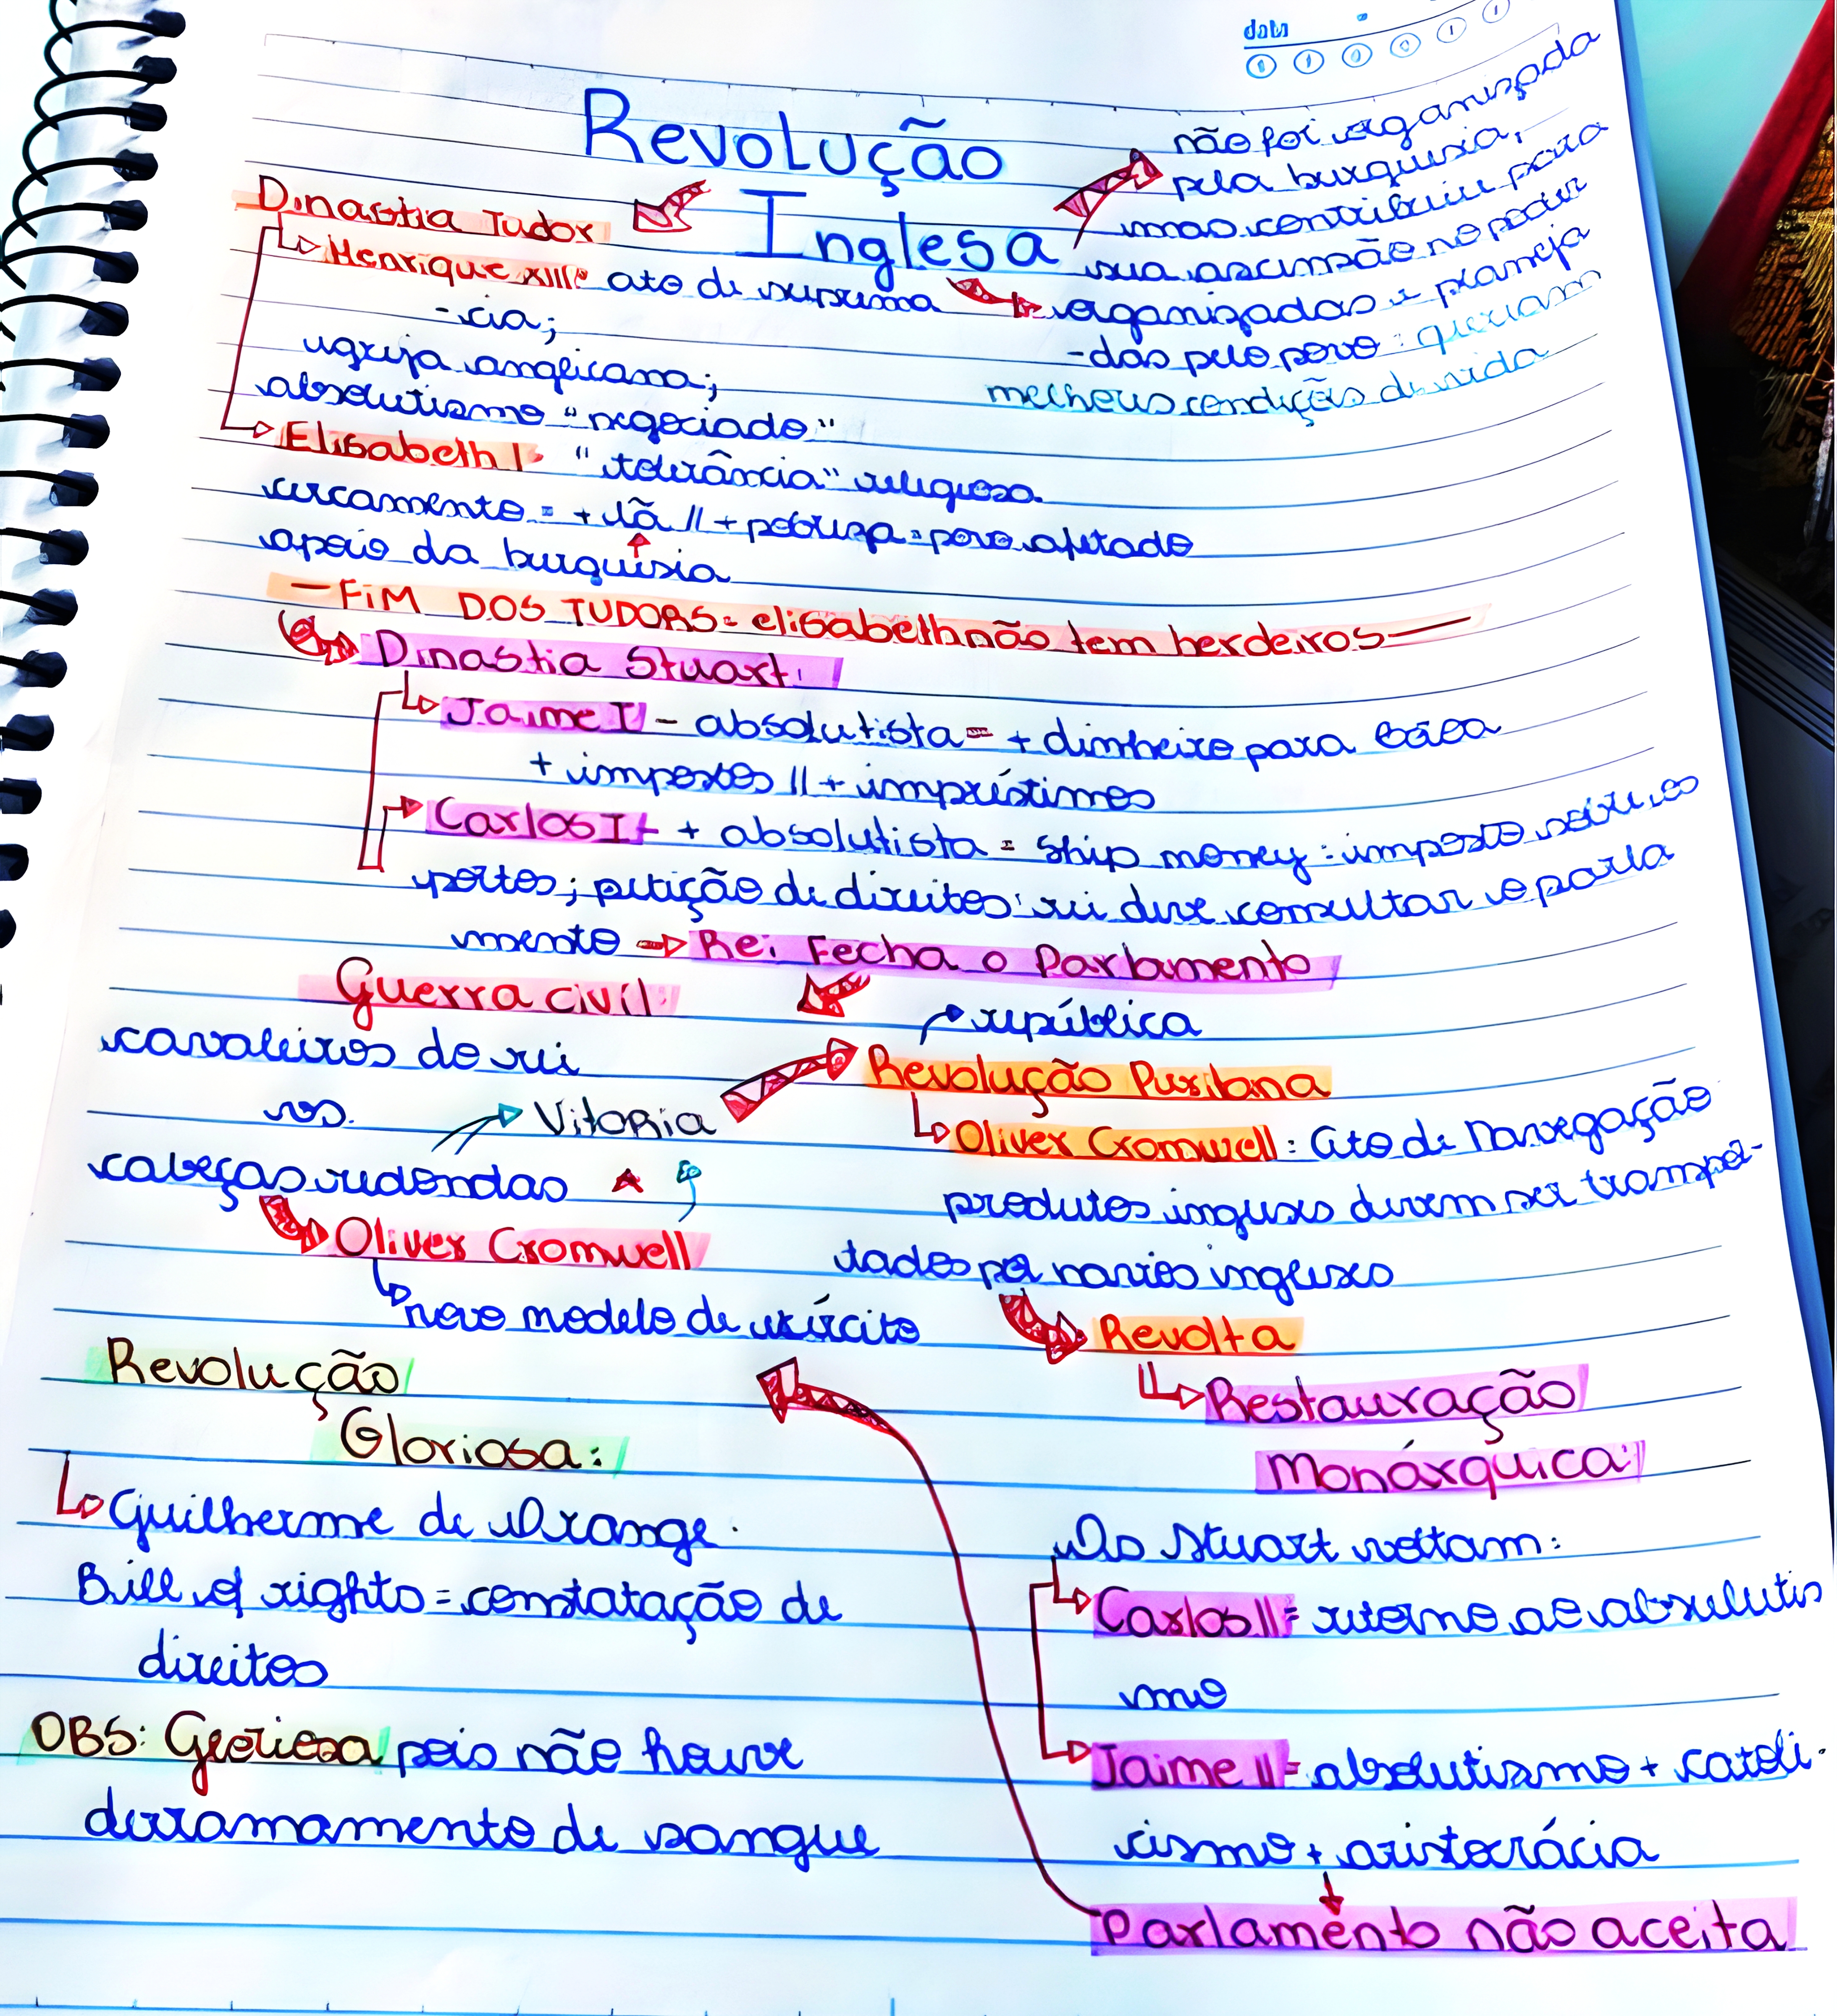 data
Revolução
Inglesa
não foi organizada
pela burguesia,
mas contribuiu para
sua ascensão no poder
organizadas e planeja
-das pelo povo: queriam
melhores condições de vida
Dinastia Tudor
Henrique XIII: ato de suprema
-cia;
igreja anglicana;
absolutismo "negociado"
Elisabeth I: "tolerância" religiosa
cercamento = + lã // + pobreza = povo afetado
apoio da burguesia
- FIM DOS TUDORS = elisabeth não tem herdeiros -
Dinastia Stuart:
Jaime I - absolutista = + dinheiro para
+ impostos // + empréstimos
Carlos I - + absolutista = ship money: imposto sobre os
portos; petição de direitos: rei deve consultar o parla
mento → Rei Fecha o Parlamento
Guerra civil:
cavaleiros do rei
vs.
cabeças redondas
Vitória
Oliver Cromwell
novo modelo de exército
república
Revolução Puritana
Oliver Cromwell: Ato de Navegação
produtos ingleses devem ser transpor-
tados por navios ingleses
Revolta
Restauração
Monárquica:
Os Stuart voltam:
Carlos II = retorno ao absolutis
mo
Jaime II = absolutismo + catoli-
cismo + aristocrácia
Parlamento não aceita
Revolução
Gloriosa:
Guilherme de Orange.
Bill of rights = constatação de
direitos
OBS: Gloriosa pois não houve
derramamento de sangue